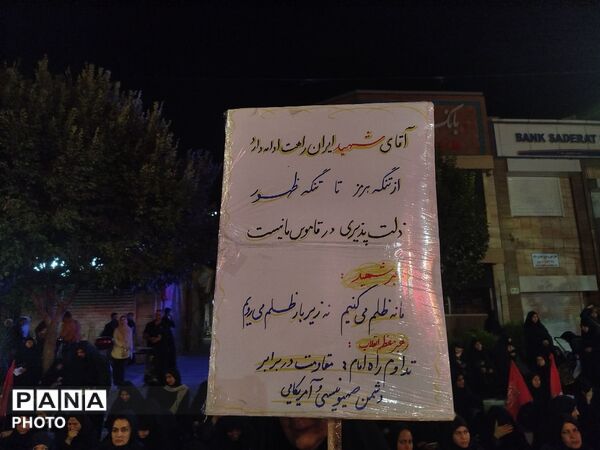 آقای شهید ایران راهت ادامه دارد
از تنگه هرمز تا تنگه ظهور
ذلت پذیری در قاموس ما نیست
رهبر شهید:
ما نه ظلم می کنیم نه زیر بار ظلم می رویم
رهبر معظم انقلاب:
تداوم راه امام: مقاومت در برابر
دشمن صهیونیستی و آمریکایی
BANK SADERAT
PANA
PHOTO